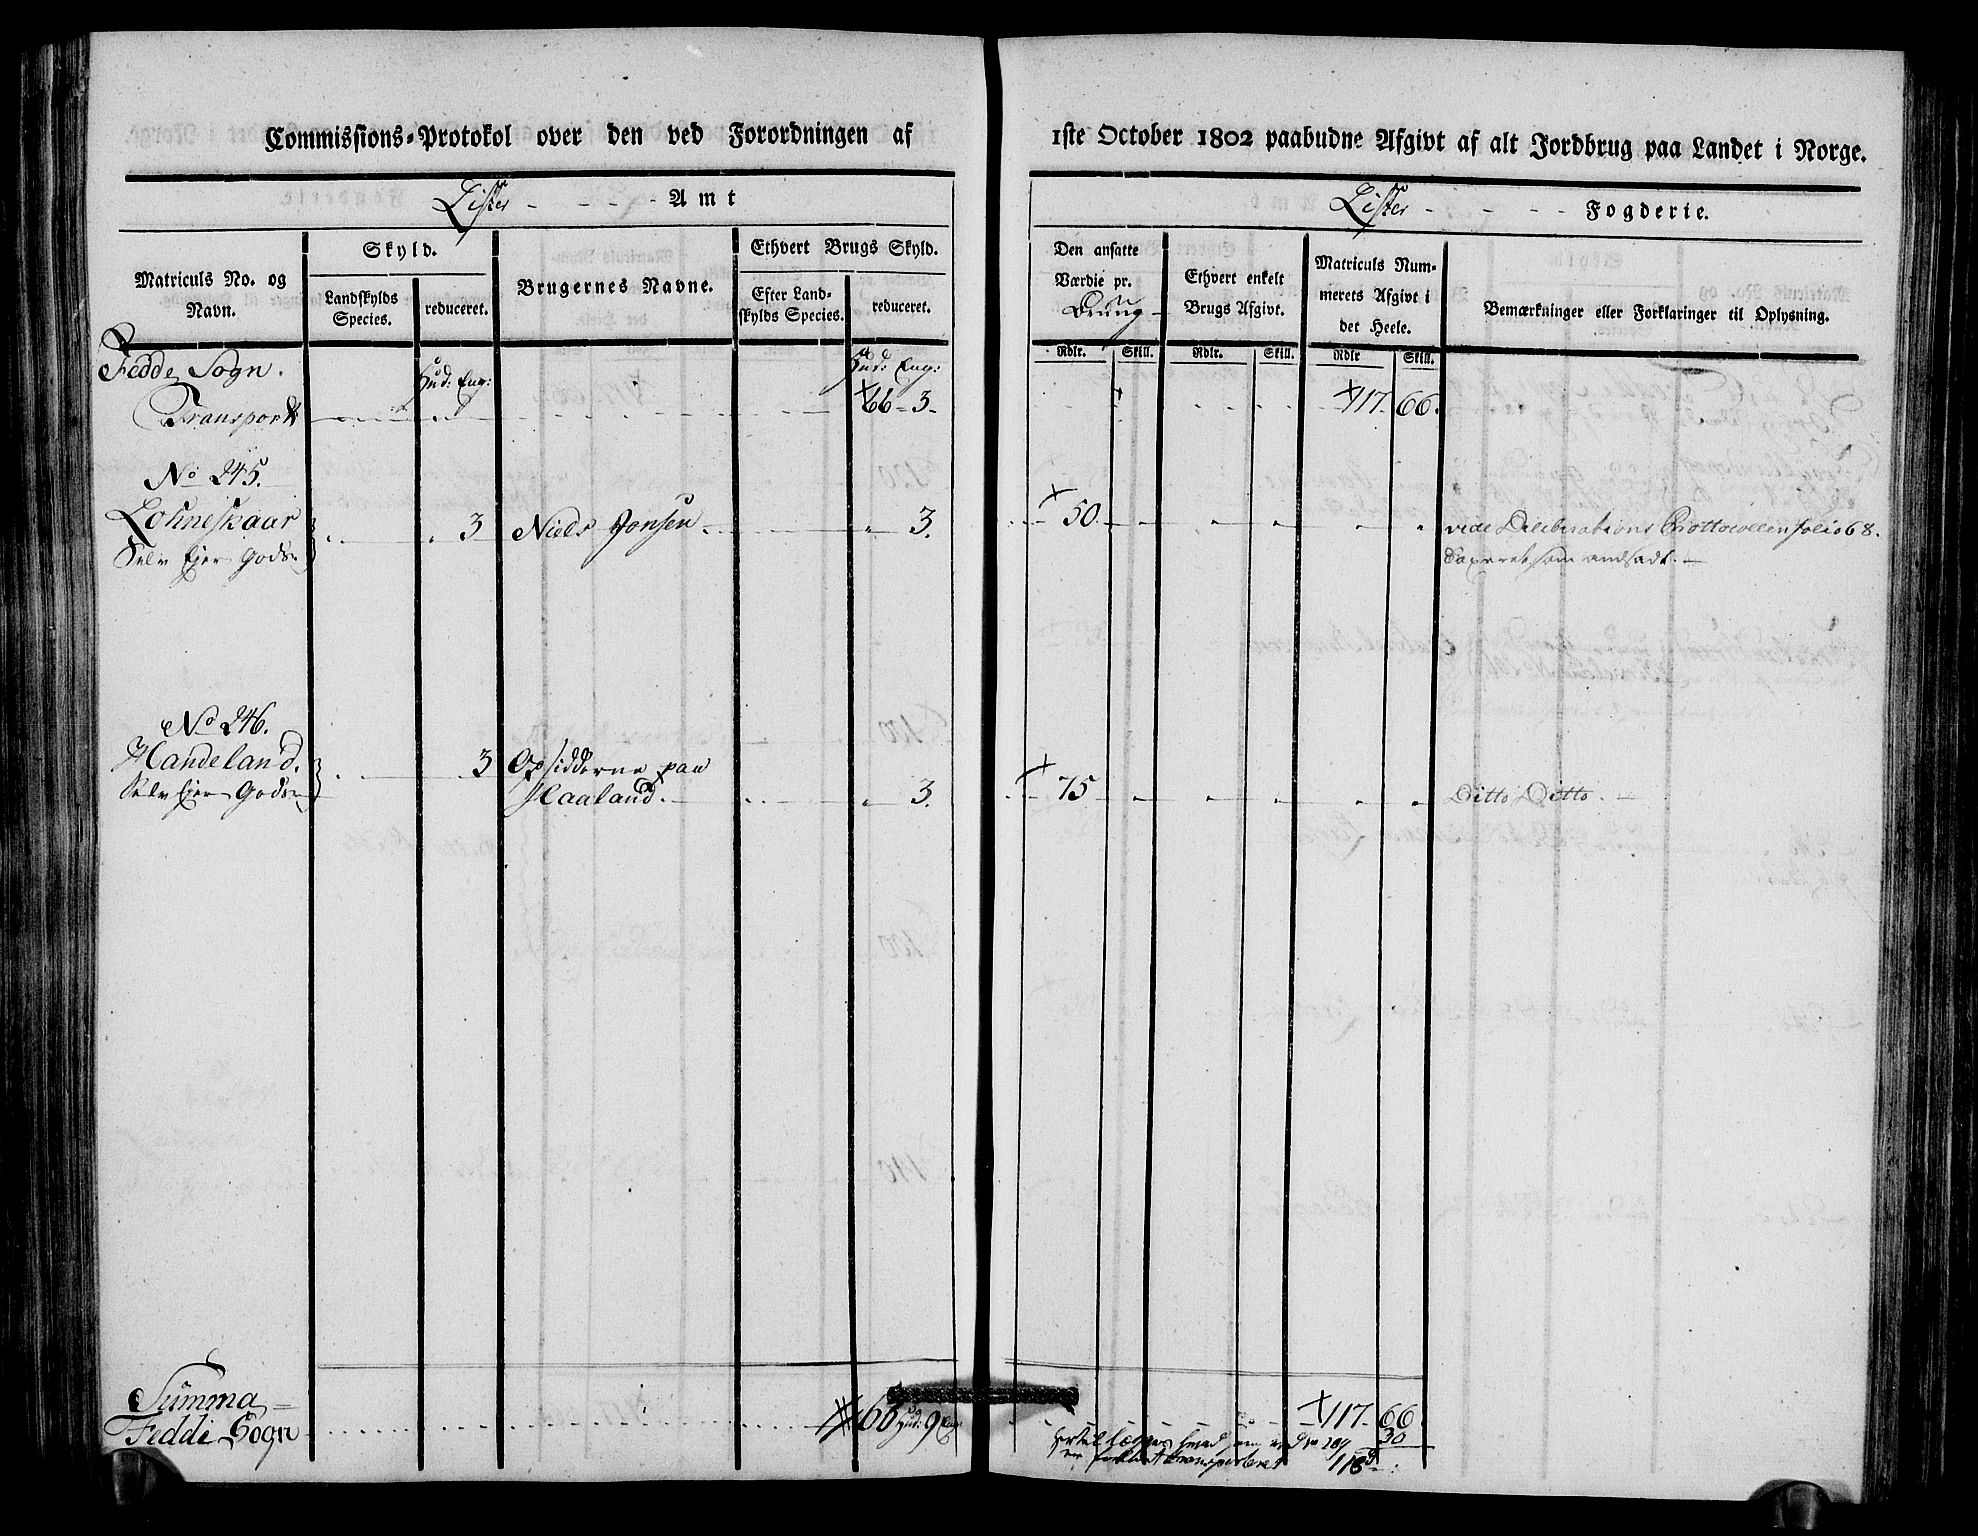 Commissions-Protokol over den ved Forordningen af 1ste October 1802 paabudne Afgivt af alt Jordbrug paa Landet i Norge.
Lister - - - - Amt
Lister - - - - Fogderie.
Matriculs No. og Navn.
Skyld.
Landskylds Species.
reduceret.
Brugernes Navne.
Ethvert Brugs Skyld.
Efter Landskylds Species.
reduceret.
Den ansatte Værdie pr. Brug
Ethvert enkelt Brugs Afgivt.
Matriculs Nummerets Afgivt i det Heele.
Bemærkninger eller Forklaringer til Oplysning.
Rdlr. Skill. Rdlr. Skill. Rdlr Skill.
Fedde Sogn. Hud: Eng: Hud: Eng:
Transport 66 - 3 - 117. 66.
No 245.
Lohneskaar 3 Niels Jonsen 3. 50. vide Deliberations Prottocollen folio 68.
Selv Ejer Gods Taxeret som andsadt.
No 246.
Handeland. 3 Opsidderne paa
Selv Ejer Gods Haaland. 3. 75 Ditto Ditto.
Summa
Feddi Sogn 66 Hud: 9 Eng: 117 - 66
30
118